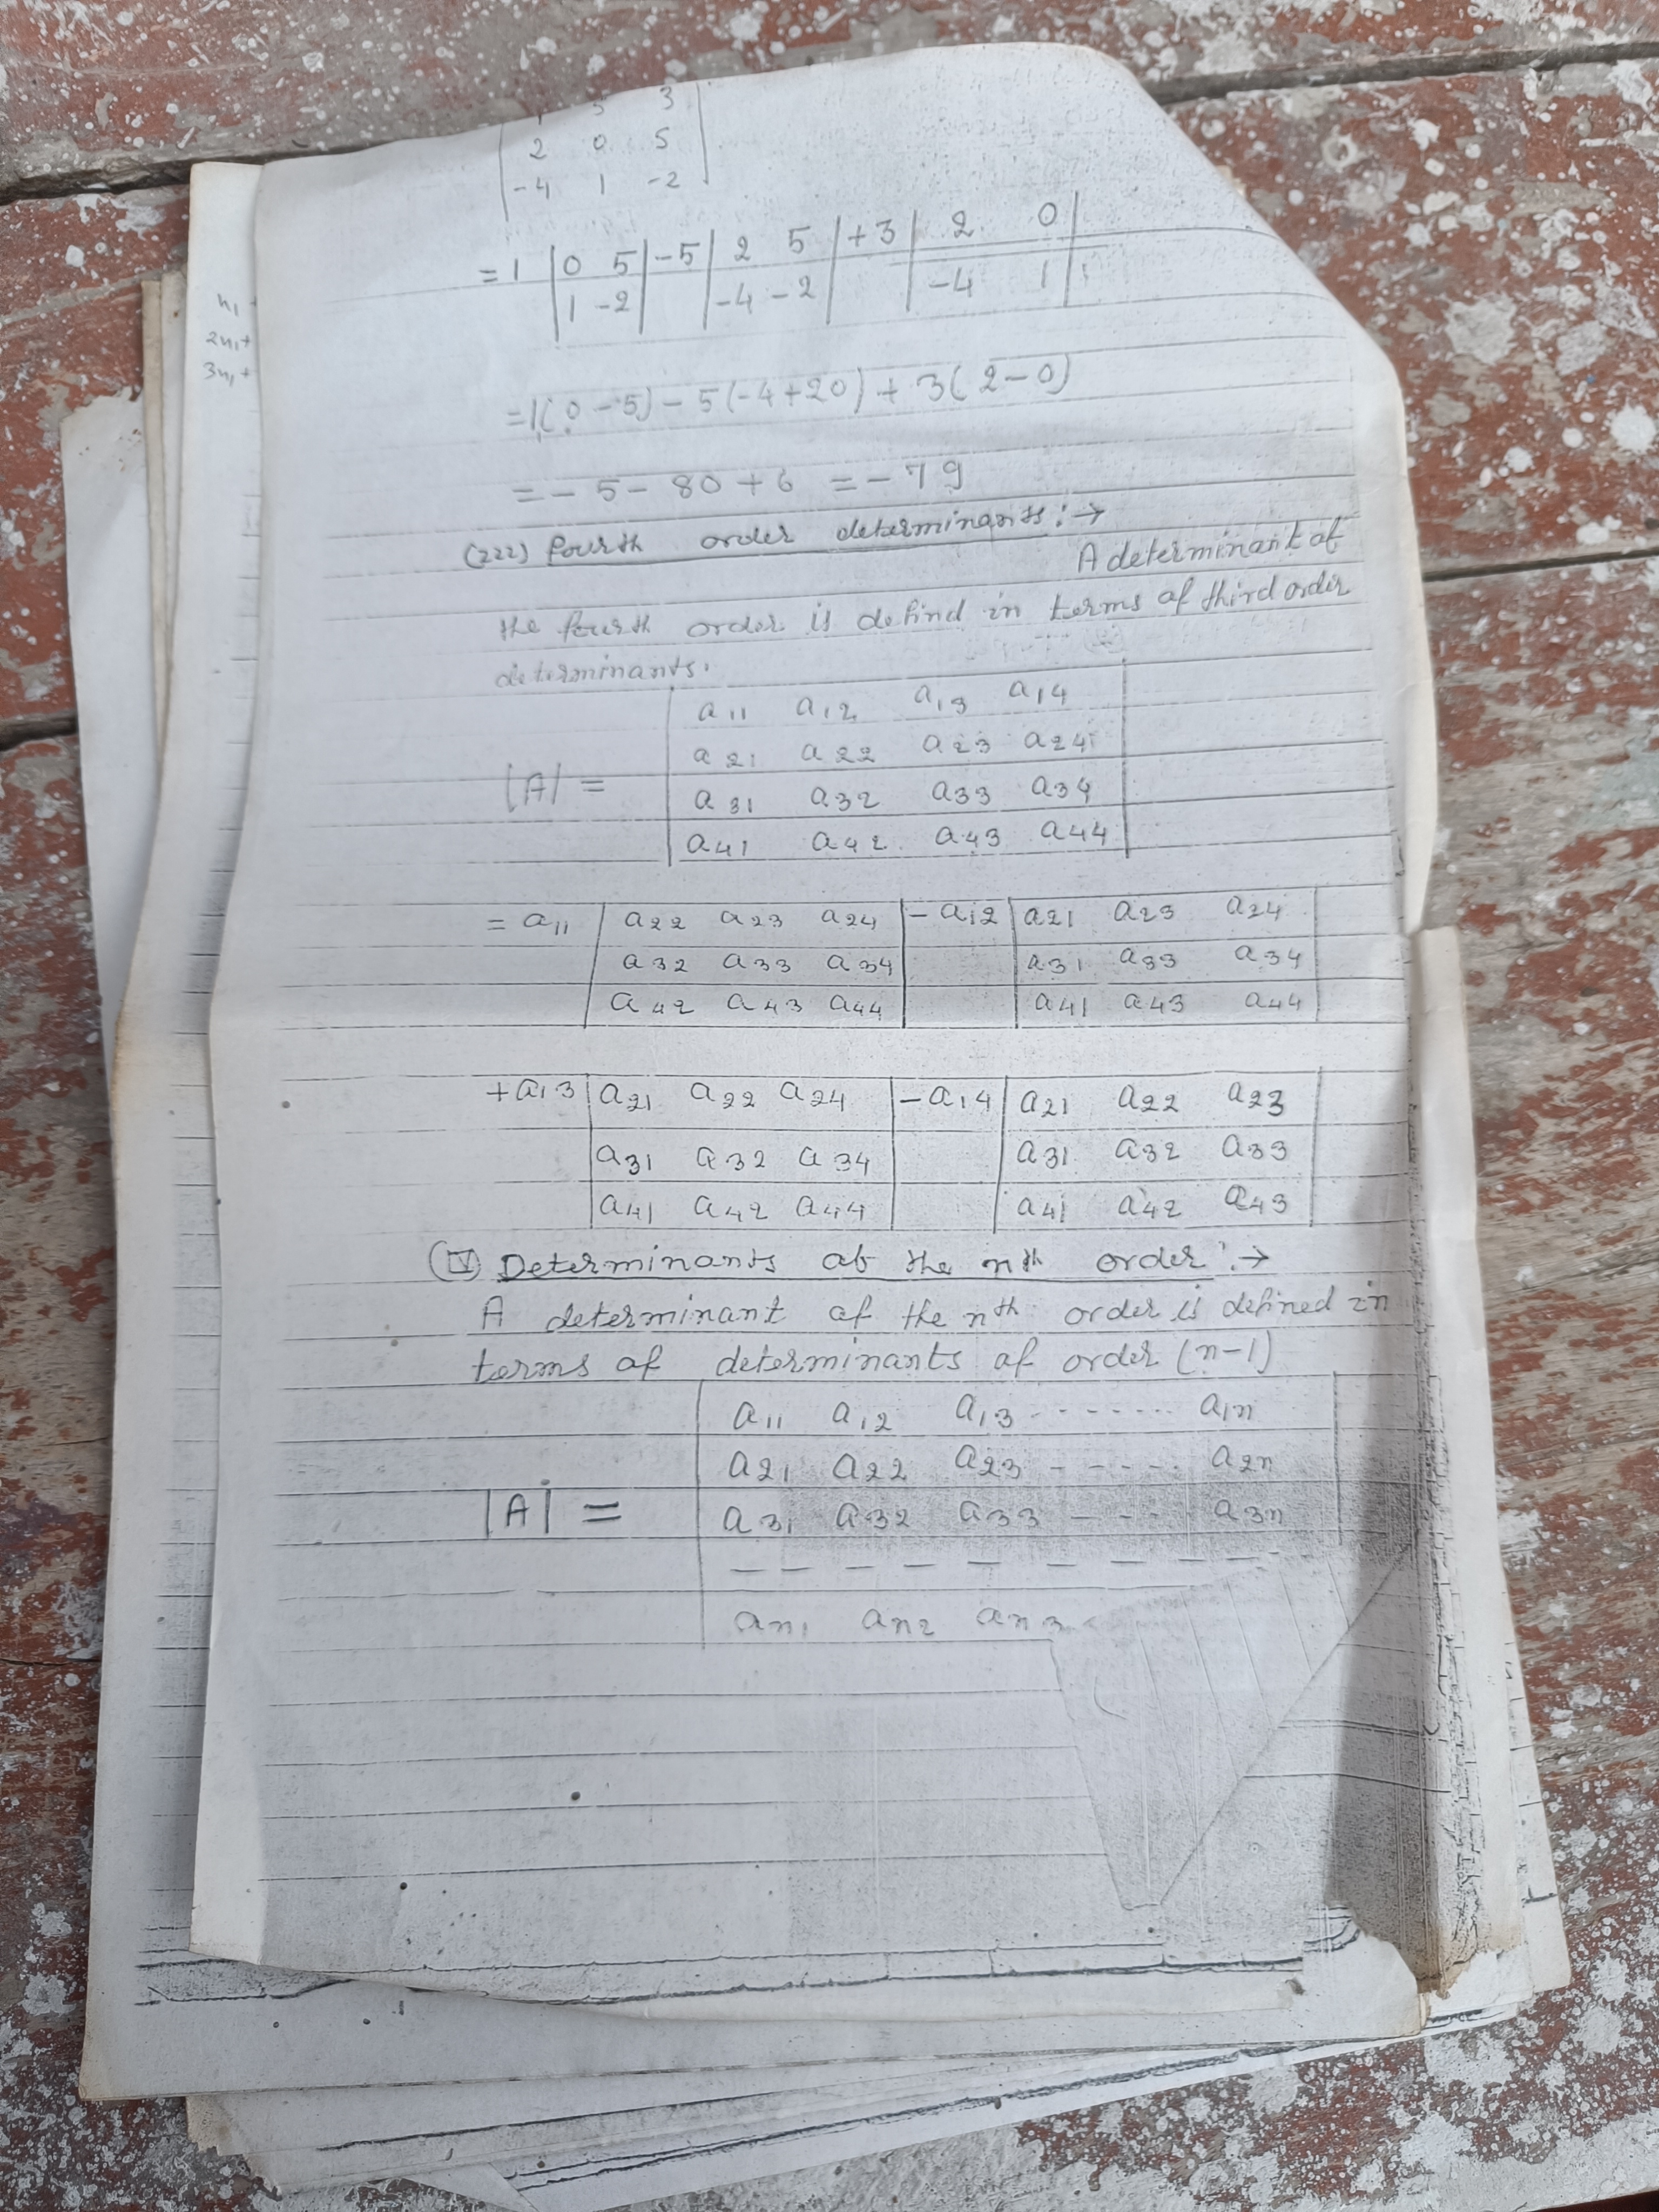 5 3
2 0 5
-4 1 -2
= 1 | 0 5 | -5 | 2 5 | +3 | 2 0 |
| 1 -2 | | -4 -2 | | -4 1 |
n1
2n1+
3n1+
= 1(0-5) - 5(-4+20) + 3(2-0)
= - 5 - 80 + 6 = - 79
(iii) fourth order determinants :→
A determinant of
the fourth order is defind in terms of third order
determinants.
a11 a12 a13 a14
a21 a22 a23 a24
|A| =
a31 a32 a33 a34
a41 a42 a43 a44
= a11 | a22 a23 a24 | - a12 | a21 a23 a24 |
| a32 a33 a34 | | a31 a33 a34 |
| a42 a43 a44 | | a41 a43 a44 |
+a13 | a21 a22 a24 | - a14 | a21 a22 a23 |
| a31 a32 a34 | | a31 a32 a33 |
| a41 a42 a44 | | a41 a42 a43 |
(IV) Determinants of the nth order :→
A determinant of the nth order is defined in
terms of determinants of order (n-1)
a11 a12 a13 ------- a1n
a21 a22 a23 ------ a2n
|A| = a31 a32 a33 ---- a3n
— — — — — — — —
an1 an2 an3